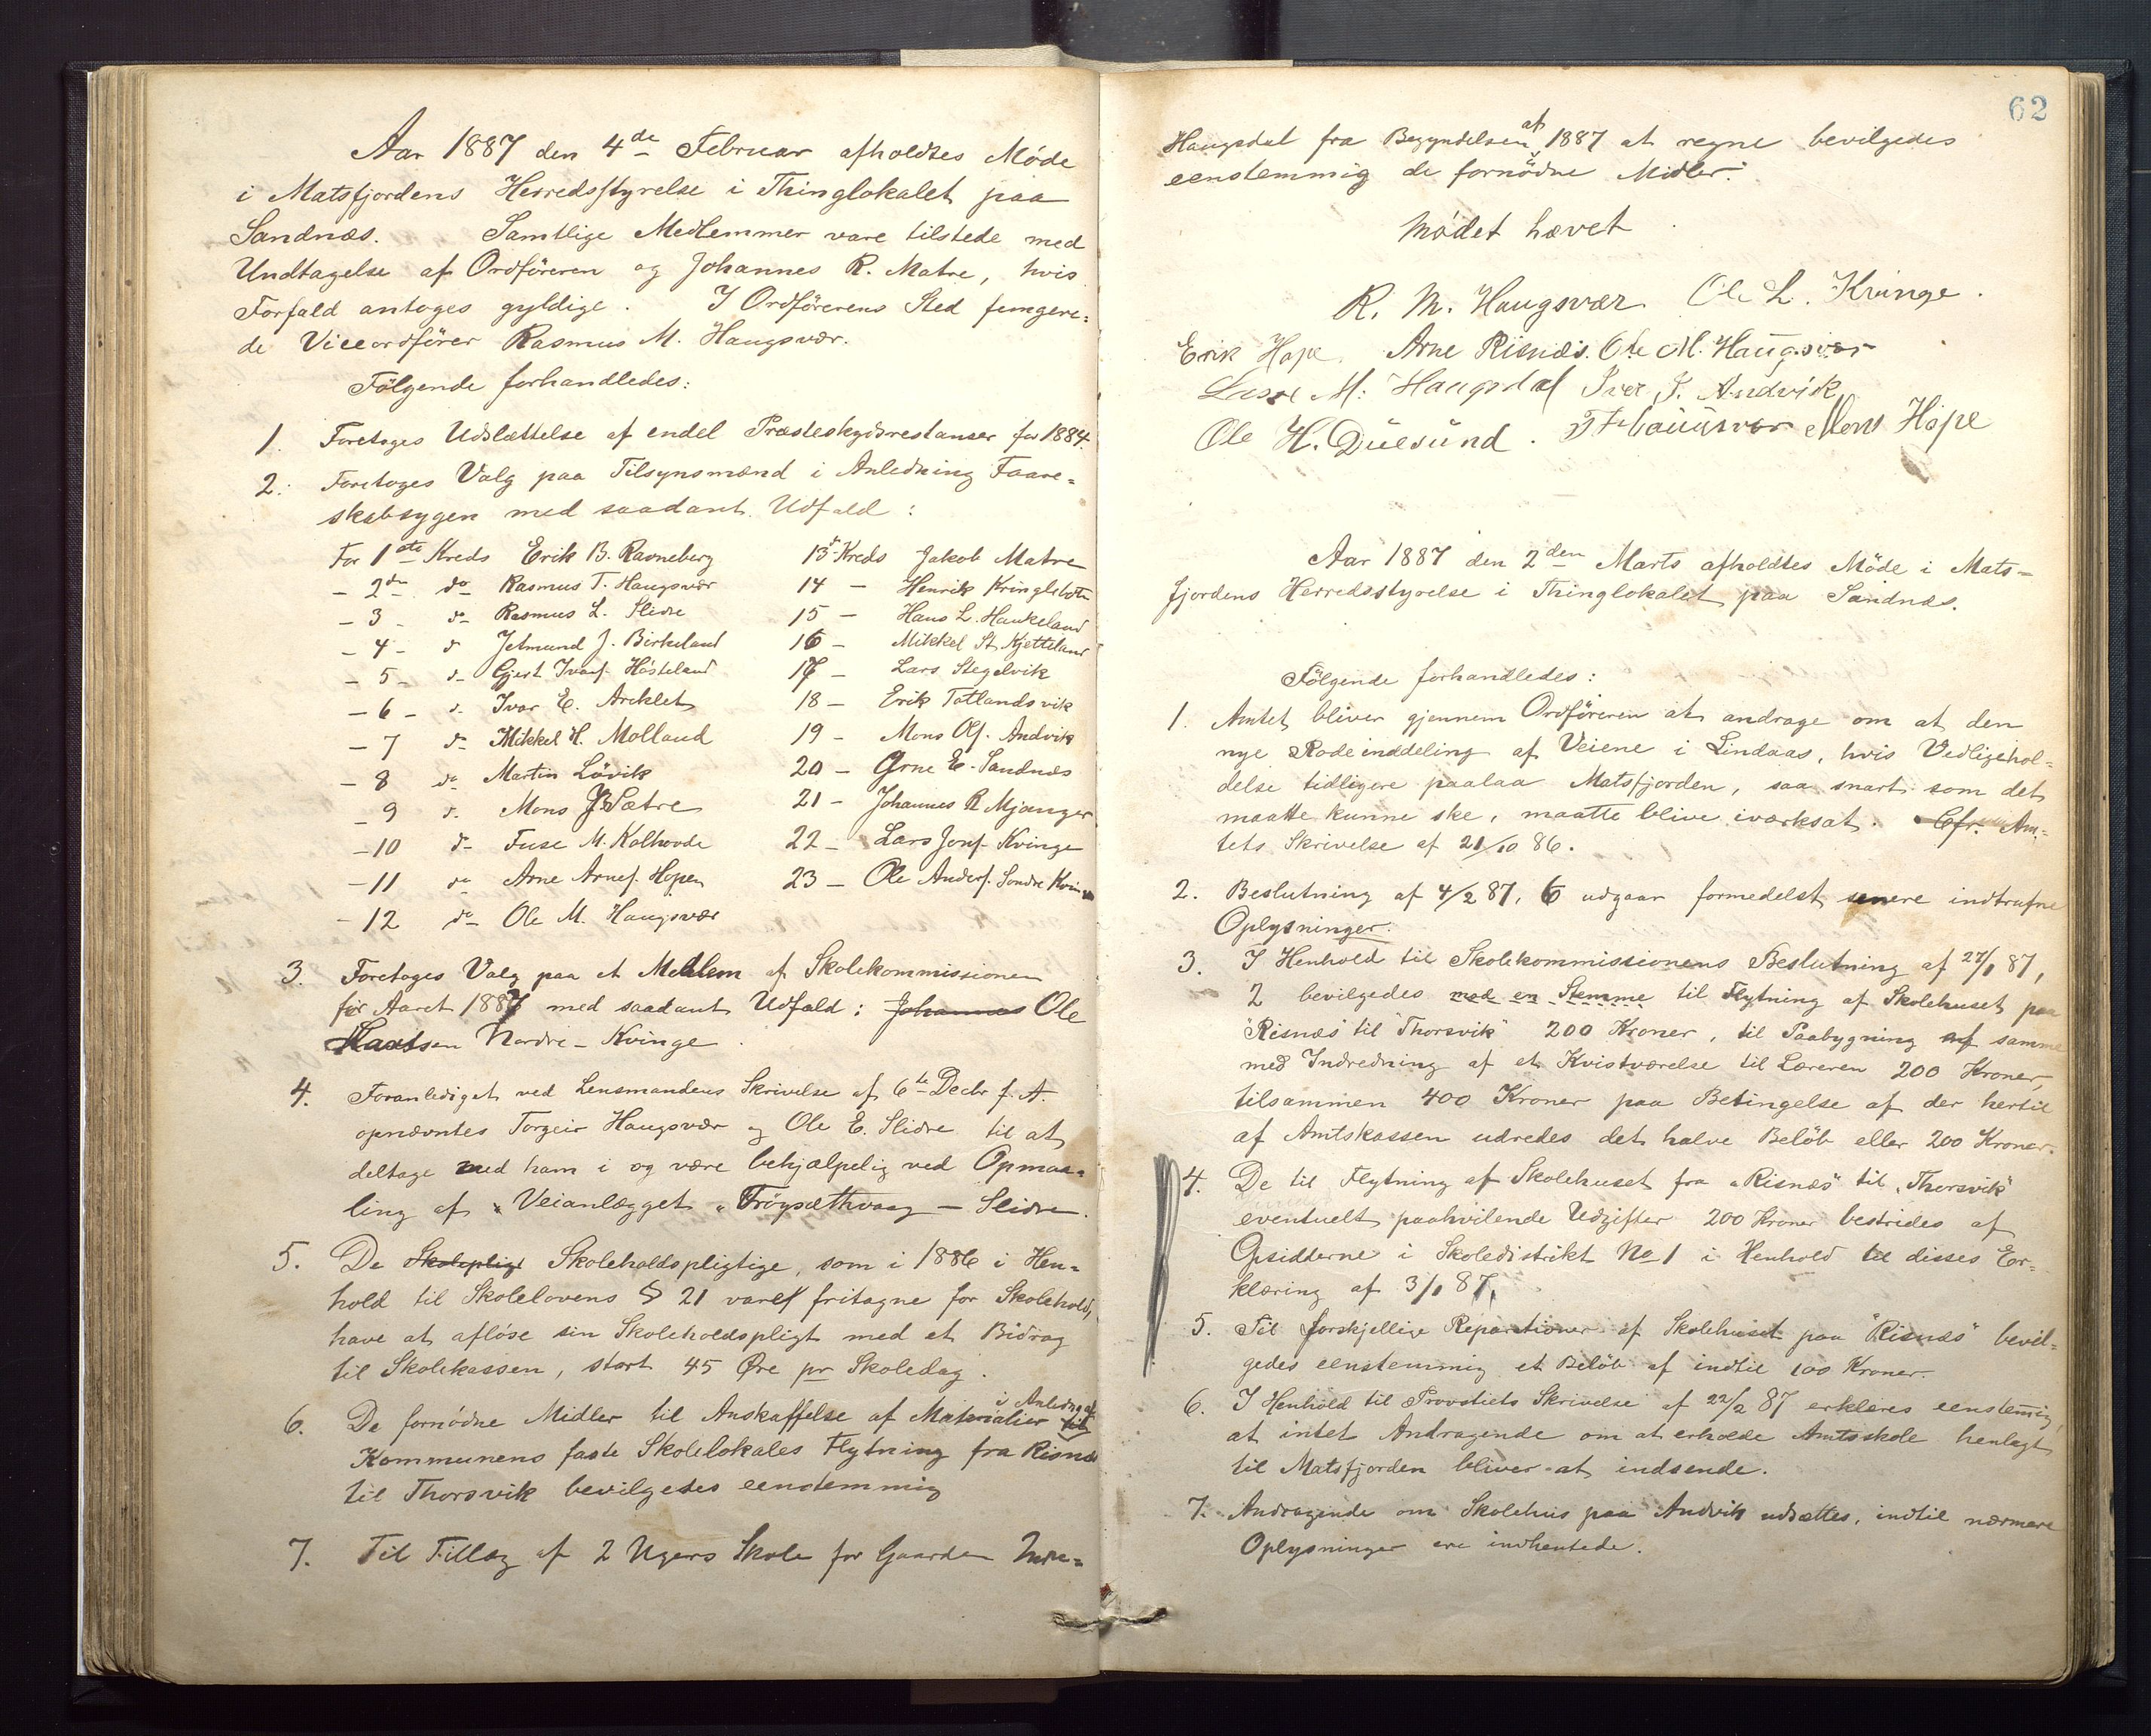 Aar 1887 den 4de Februar afholdtes Möde
i Matsfjordens Herredsstyrelse i Thinglokalet paa
Sandnæs. Samtlige Medlemmer vare tilstede med
Undtagelse af Ordföreren og Johannes R. Matre, hvis
Forfald antoges gyldige. I Ordförerens Sted fungere-
de Viceordförer Rasmus M. Haugsvær.
Fölgende forhandledes:
1. Foretoges Udslættelse af endel Præsteskydsrestanser for 1884.
2. Foretoges Valg paa Tilsynsmænd i Anledning Faare-
skabsygen med saadant Udfald:
For 1ste Kreds Erik B. Ravneberg
- 2den do Rasmus T. Haugsvær
- 3 - do Rasmus L. Slidre
- 4 - d Jetmund J. Birkeland
- 5 - d- Gjert Ivarf. Hösteland
- 6 - d. Ivar E. Areklet
- 7 do Mikkel H. Molland
- 8 do Martin Lövik
- 9 d. Mons J. Sætre
- 10 d- Fuse M. Kalhovde
- 11 do Arne Arnef. Hopen
- 12 do Ole M. Haugsvær
13 Kreds Jakob Matre
14 - Henrik Kringlebotn
15 - Hans L. Haukeland
16 - Mikkel St. Kjetteland
17 - Lars Stegelvik
18 - Erik Totlandsvik
19 - Mons Olf. Andvik
20 - Arne E. Sandnæs
21 - Johannes R Mjanger
22 - Lars Jonf. Kvinge
23 - Ole Anderf. Söndre Kvinge
3. Foretoges Valg paa et Medlem af Skolekommissionen
for Aaret 1887 med saadant Udfald: Johannes Ole
Nordre-Kvinge.
4. Foranlediget ved Lensmandens Skrivelse af 6te Decbr f. A.
opnævntes Torgeir Haugsvær og Ole E. Slidre til at
deltage med ham i og være behjælpelig ved Opmaa-
ling af Veianlægget "Fröysæthvaag - Slidre.
5. De Skolepligt Skoleholdspligtige, som i 1886 i Hen-
hold til Skolelovens § 21 vare fritagne for Skolehold,
have at aflöse sin Skoleholdspligt med et Bidrag
til Skolekassen, stort 45 Øre pr Skoledag.
6. De fornödne Midler til Anskaffelse af Materialier til i Anledng af
Kommunens faste Skolelokales Flytning fra Risnæs
til Thorsvik bevilgedes eenstemmig
7. Til Tillæg af 2 Ugers Skole for Gaarden Indre-
62
Haugsdal fra Begyndelsen af 1887 at regne bevilgedes
eenstemmig de fornödne Midler.
Mödet hævet
R. M. Haugsvær. Ole L. Kvinge.
Erik Hope. Arne Risnæs. Ole M. Haugsvær
Lasse M. Haugsdal Iver J. Andvik
Ole H. Duesund. T Haugsvær Mons Hope
Aar 1887 den 2den Marts afholdtes Möde i Mats-
fjordens Herredsstyrelse i Thinglokalet paa Sandnæs.
Fölgende forhandledes:
1. Amtet bliver gjennem Ordföreren at andrage om at den
nye Rodeinddeling af Veiene i Lindaas, hvis Vedligehol-
delse tidligere paalaa Matsfjorden, saa snart som det
maatte kunne ske, maatte blive iværksat. Cfr. Am-
tets Skrivelse af 21/10 86.
2. Beslutning af 4/2 87, 6 udgaar formedelst senere indtrufne
Oplysninger.
3. I Henhold til Skolekommissionens Beslutning af 27/1 87,
2 bevilgedes med en Stemme til Flytning af Skolehuset paa
"Risnæs" til "Thorsvik" 200 Kroner, til Paabygning af samme
med Indredning af et Kvistværelse til Læreren 200 Kroner,
tilsammen 400 Kroner paa Betingelse af der hertil
af Amtskassen udredes det halve Belöb eller 200 Kroner.
4. De til Flytning af Skolehuset fra "Risnæs" til "Thorsvik"
eventuelt paahvilende Udgifter 200 Kroner bestrides af
Opsidderne i Skoledistrikt No 1 i Henhold til disses Er-
klæring af 3/1 87.
5. Til forskjellige Reparationer af Skolehuset paa "Risnæs" bevil-
gedes eenstemmig et Belöb af indtil 100 Kroner.
6. I Henhold til Provstiets Skrivelse af 22/2 87 erklæres eenstemmig,
at intet Andragende om at erholde Amtsskole henlagt
til Matsfjorden bliver at indsende.
7. Andragende om Skolehus paa Andvik udsættes, indtil nærmere
Oplysninger ere indhentede.